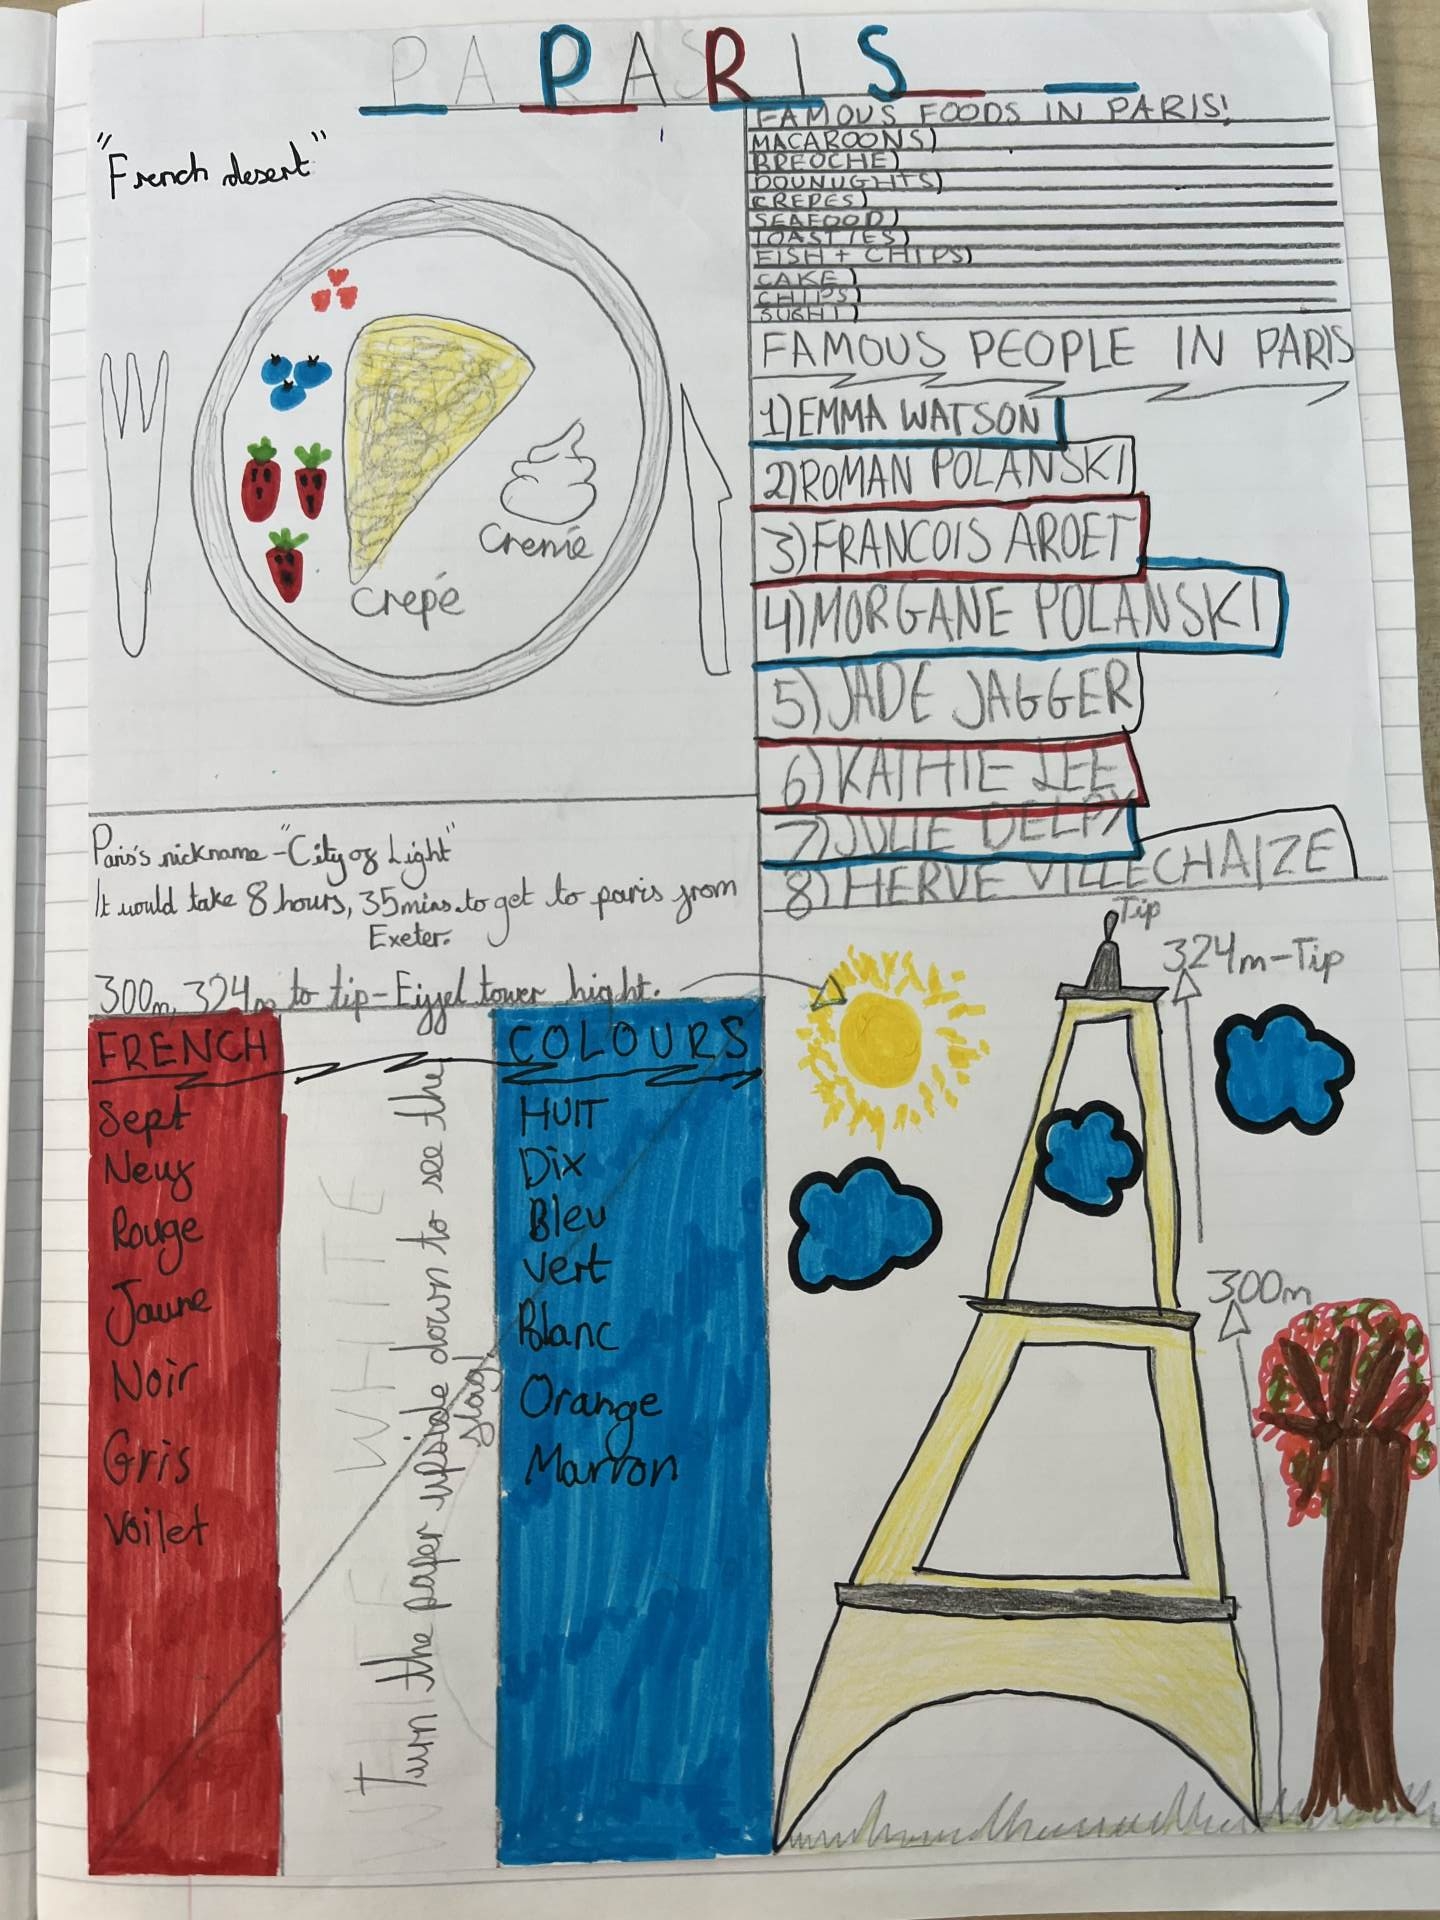 PARIS
"French desert"
Crepé
Cremé
FAMOUS FOODS IN PARIS!
MACAROONS)
BREOCHE)
DOUNUGHTS)
CREPES)
SEAFOOD)
TOASTIES)
FISH + CHIPS)
CAKE)
CHIPS)
SUSHI)
FAMOUS PEOPLE IN PARIS
1) EMMA WATSON
2) ROMAN POLANSKI
3) FRANCOIS AROET
4) MORGANE POLANSKI
5) JADE JAGGER
6) KATHIE LEE
7) JULIE DELPY
8) HERVE VILLECHAIZE
Paris's nickname - "City of Light"
It would take 8 hours, 35mins to get to paris from
Exeter.
300m, 324m to tip - Eiffel tower hight.
FRENCH COLOURS
Sept
Neuf
Rouge
Jaune
Noir
Gris
Voilet
WHITE
Turn the paper upside down to see the
flag!
HUIT
Dix
Bleu
Vert
Blanc
Orange
Marron
Tip
324m-Tip
300m